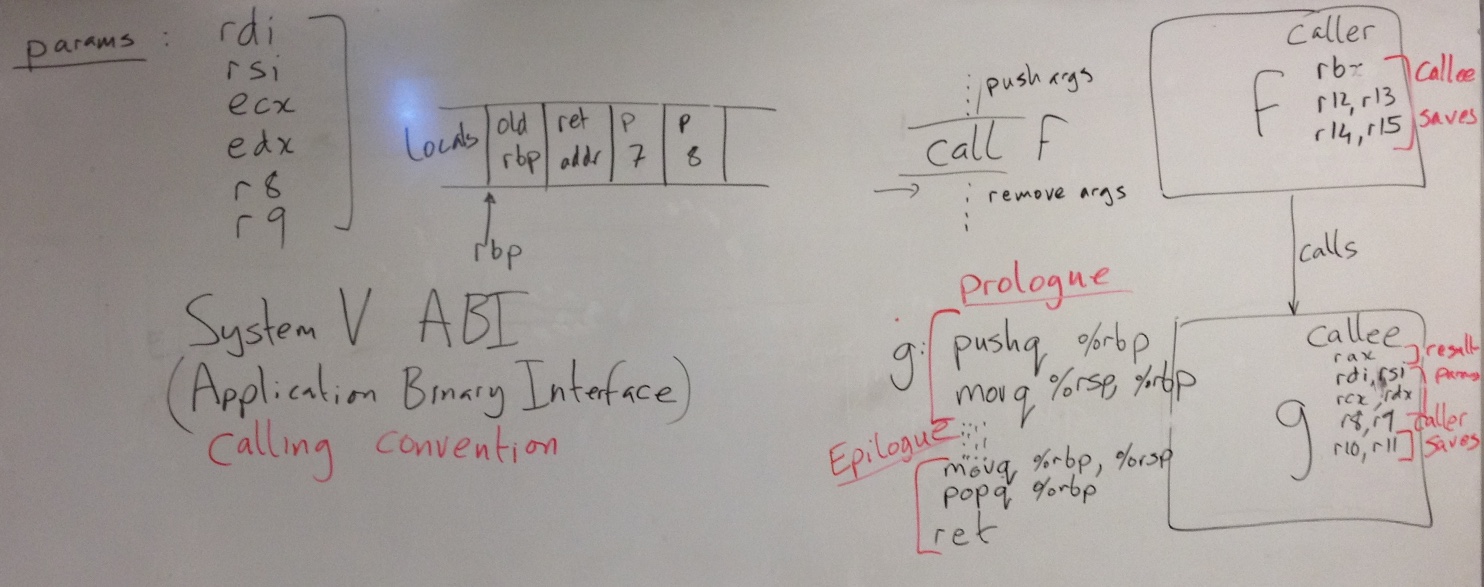 params :
rdi
rsi
ecx
edx
r8
r9
Locals
old rbp
ret addr
P 7
P 8
rbp
System V ABI
(Application Binary Interface)
Calling convention
push args
call F
→
remove args
Prologue
g:
pushq %rbp
movq %rsp, %rbp
Epilogue
movq %rbp, %rsp
popq %rbp
ret
caller
F
rbx
r12, r13
r14, r15
callee
saves
calls
callee
g
rax
result
rdi, rsi
params
rcx, rdx
r8, r9
r10, r11
caller
saves